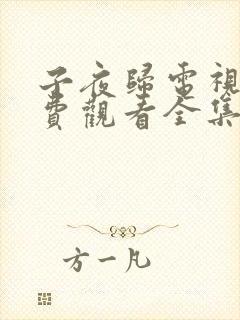 子夜歸電視
費觀看全集
方一凡